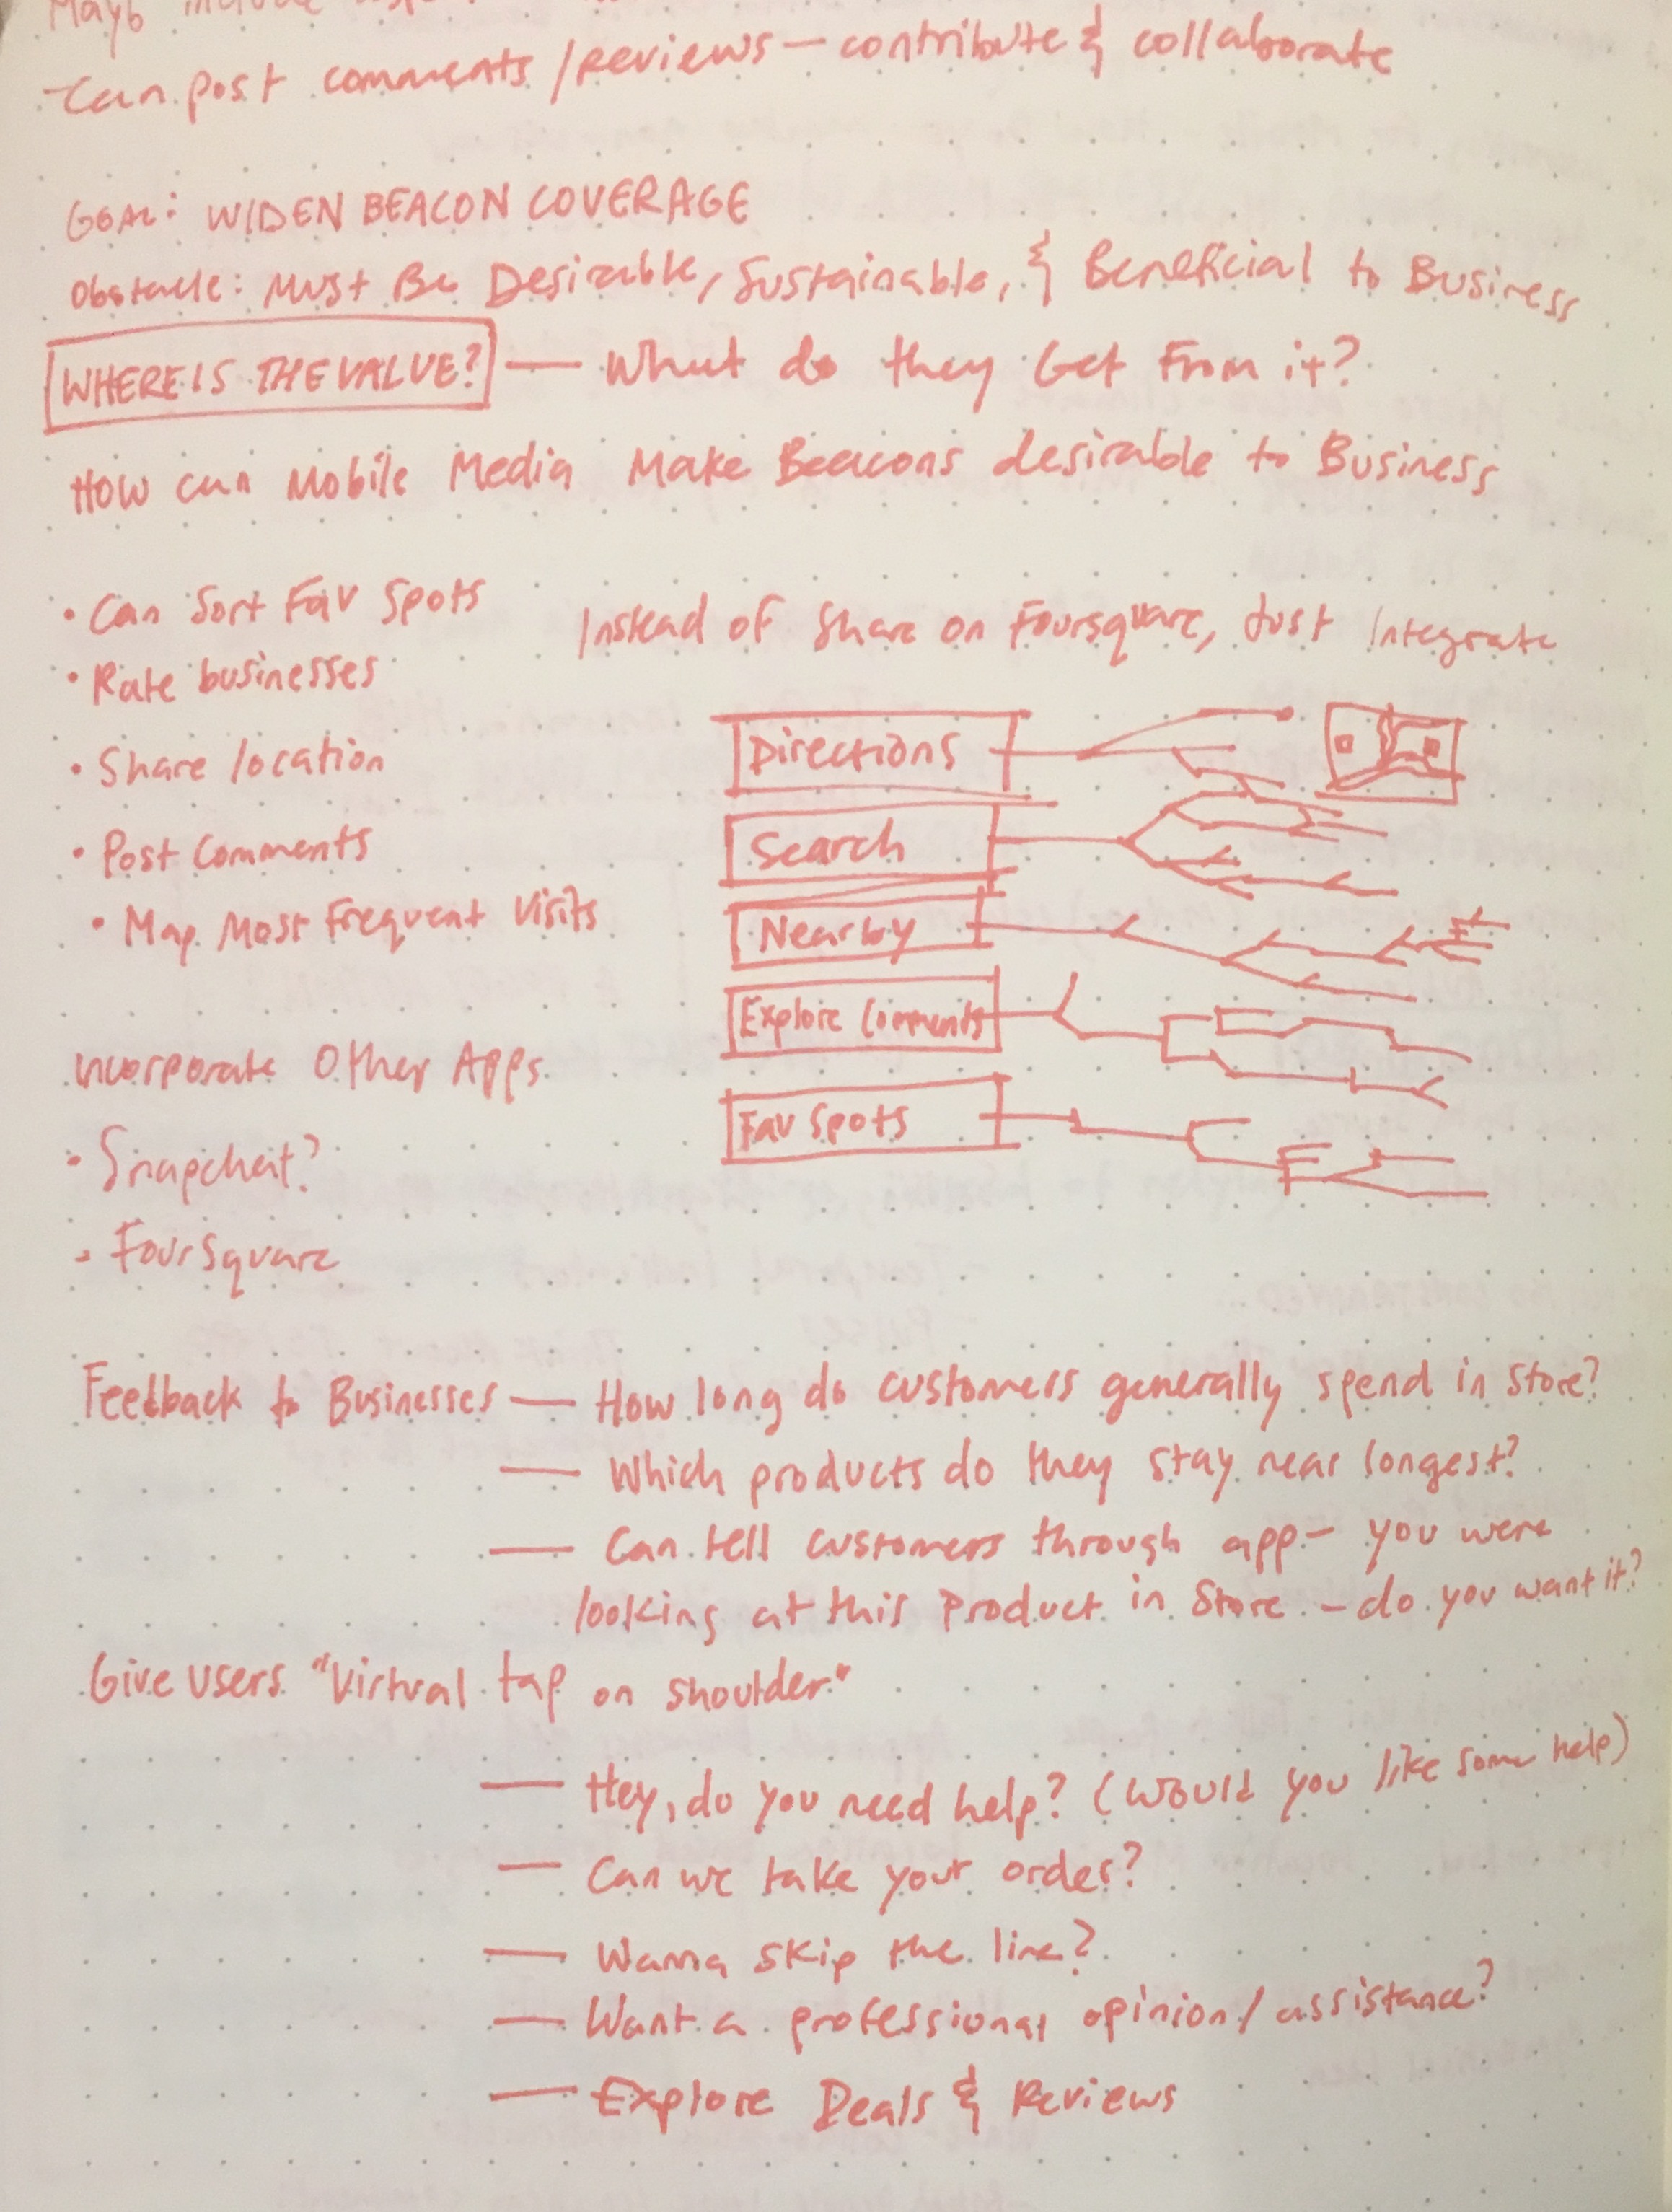 Mayb include
- Can post comments/reviews — contribute & collaborate
GOAL: WIDEN BEACON COVERAGE
Obstacle: Must Be Desirable, Sustainable, & Beneficial to Business
WHERE IS THE VALUE? — What do they Get From it?
How can Mobile Media Make Beacons desirable to Business
• Can Sort Fav Spots
• Rate businesses
• Share location
• Post Comments
• Map Most Frequent Visits
Instead of Share on Foursquare, Just Integrate
Directions
Search
Nearby
Explore Comments
Fav Spots
Incorporate Other Apps
• Snapchat?
• Foursquare
Feedback to Businesses — How long do customers generally spend in store?
— Which products do they stay near longest?
— Can tell customers through app - you were
looking at this product in Store - do you want it?
Give users "Virtual tap on shoulder"
— Hey, do you need help? (Would you like some help)
— Can we take your order?
— Wanna skip the line?
— Want a professional opinion/assistance?
— Explore Deals & Reviews